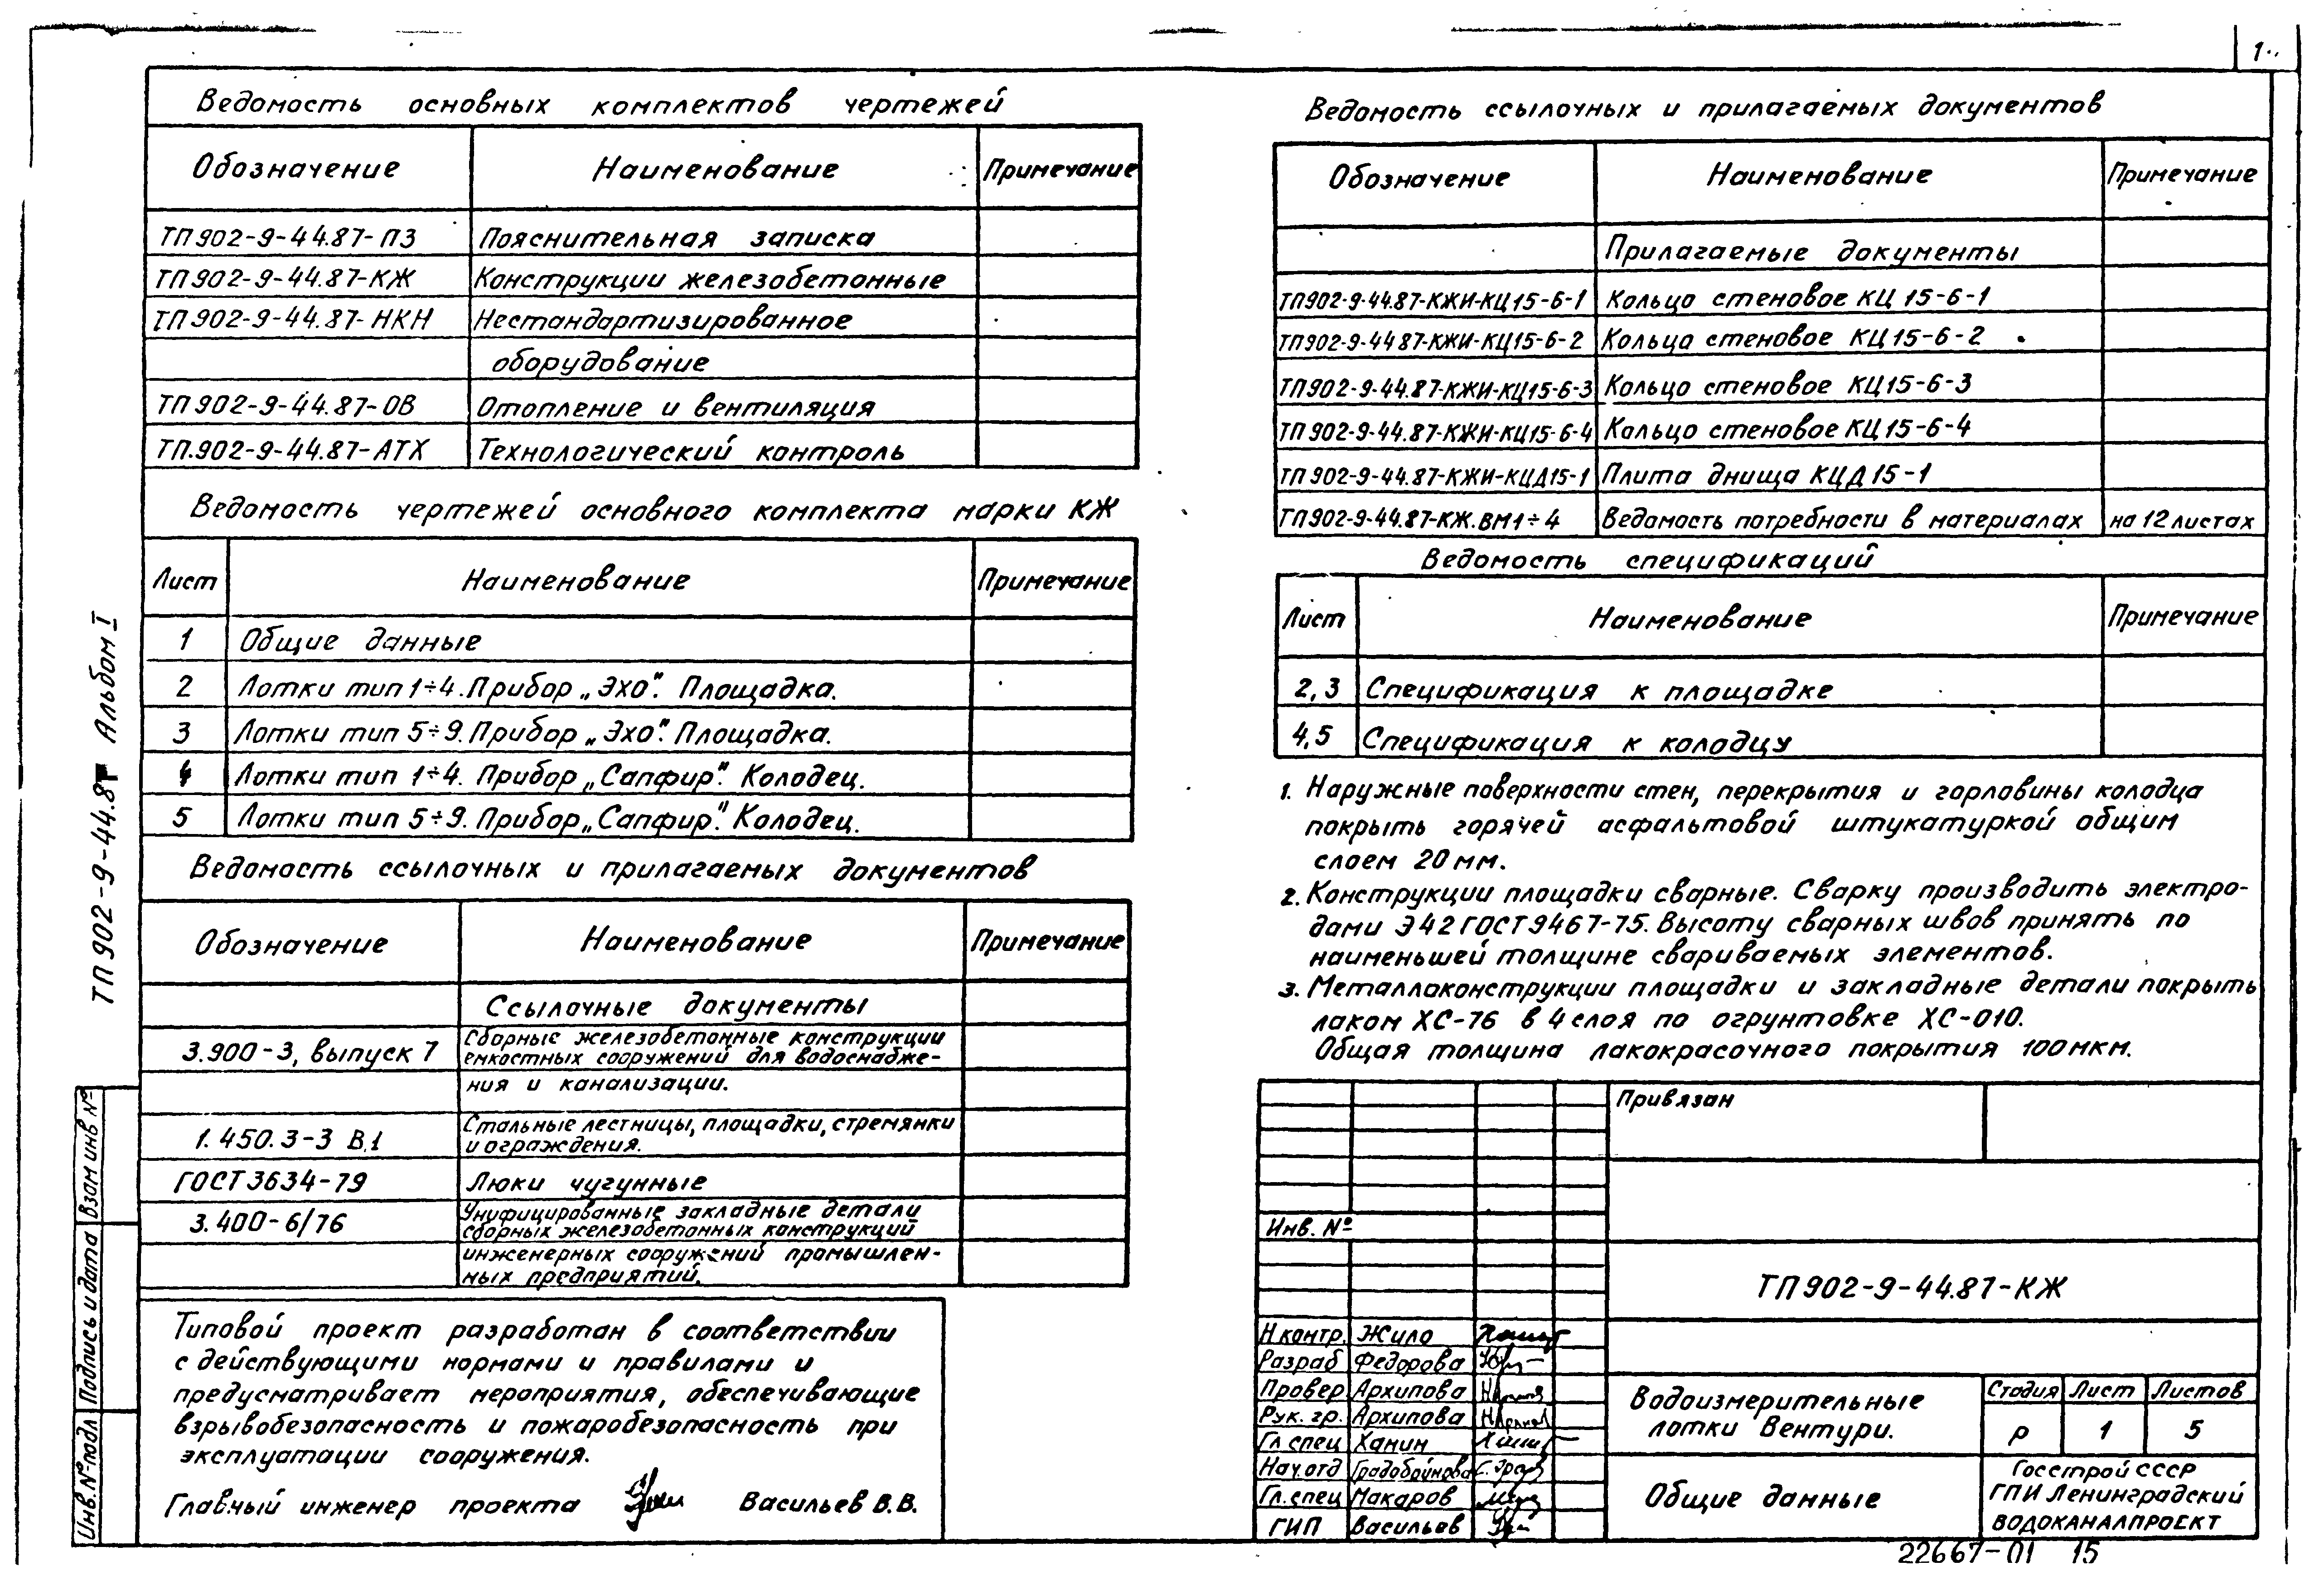 1
Ведомость основных комплектов чертежей
Обозначение Наименование Примечание
ТП902-9-44.87-ПЗ Пояснительная записка
ТП902-9-44.87-КЖ Конструкции железобетонные
ТП902-9-44.87-НКН Нестандартизированное
оборудование
ТП902-9-44.87-ОВ Отопление и вентиляция
ТП.902-9-44.87-АТХ Технологический контроль
Ведомость чертежей основного комплекта марки КЖ
Лист Наименование Примечание
1 Общие данные
2 Лотки тип 1÷4. Прибор „Эхо". Площадка.
3 Лотки тип 5÷9. Прибор „Эхо". Площадка.
4 Лотки тип 1÷4. Прибор „Сапфир". Колодец.
5 Лотки тип 5÷9. Прибор „Сапфир". Колодец.
Ведомость ссылочных и прилагаемых документов
Обозначение Наименование Примечание
Ссылочные документы
3.900-3, выпуск 7 Сборные железобетонные конструкции
емкостных сооружений для водоснабже-
ния и канализации.
1.450.3-3 В.1 Стальные лестницы, площадки, стремянки
и ограждения.
ГОСТ 3634-79 Люки чугунные
3.400-6/76 Унифицированные закладные детали
сборных железобетонных конструкций
инженерных сооружений промышлен-
ных предприятий.
Типовой проект разработан в соответствии
с действующими нормами и правилами и
предусматривает мероприятия, обеспечивающие
взрывобезопасность и пожаробезопасность при
эксплуатации сооружения.
Главный инженер проекта Васильев В.В.
ТП902-9-44.87 Альбом I
Взам инв №
Подпись и дата
Инв. № подл
Ведомость ссылочных и прилагаемых документов
Обозначение Наименование Примечание
Прилагаемые документы
ТП902-9-44.87-КЖИ-КЦ15-6-1 Кольцо стеновое КЦ 15-6-1
ТП902-9-44 87-КЖИ-КЦ15-6-2 Кольцо стеновое КЦ15-6-2
ТП902-9-44.87-КЖИ-КЦ15-6-3 Кольцо стеновое КЦ15-6-3
ТП902-9-44.87-КЖИ-КЦ15-6-4 Кольцо стеновое КЦ15-6-4
ТП902-9-44.87-КЖИ-КЦД15-1 Плита днища КЦД15-1
ТП902-9-44.87-КЖ.ВМ1÷4 Ведомость потребности в материалах на 12 листах
Ведомость спецификаций
Лист Наименование Примечание
2,3 Спецификация к площадке
4,5 Спецификация к колодцу
1. Наружные поверхности стен, перекрытия и горловины колодца
покрыть горячей асфальтовой штукатуркой общим
слоем 20мм.
2. Конструкции площадки сварные. Сварку производить электро-
дами Э42 ГОСТ 9467-75. Высоту сварных швов принять по
наименьшей толщине свариваемых элементов.
3. Металлоконструкции площадки и закладные детали покрыть
лаком ХС-76 в 4 слоя по огрунтовке ХС-010.
Общая толщина лакокрасочного покрытия 100мкм.
Привязан
Инв. №
ТП902-9-44.87-КЖ
Н контр. Жило
Разраб Федорова
Провер Архипова
Рук. гр. Архипова
Гл спец Ханин
Нач. отд Градобойнова
Гл. спец Макаров
ГИП Васильев
Водоизмерительные
лотки Вентури.
Стадия Лист Листов
Р 1 5
Общие данные
Госстрой СССР
ГПИ Ленинградский
ВОДОКАНАЛПРОЕКТ
22667-01 15